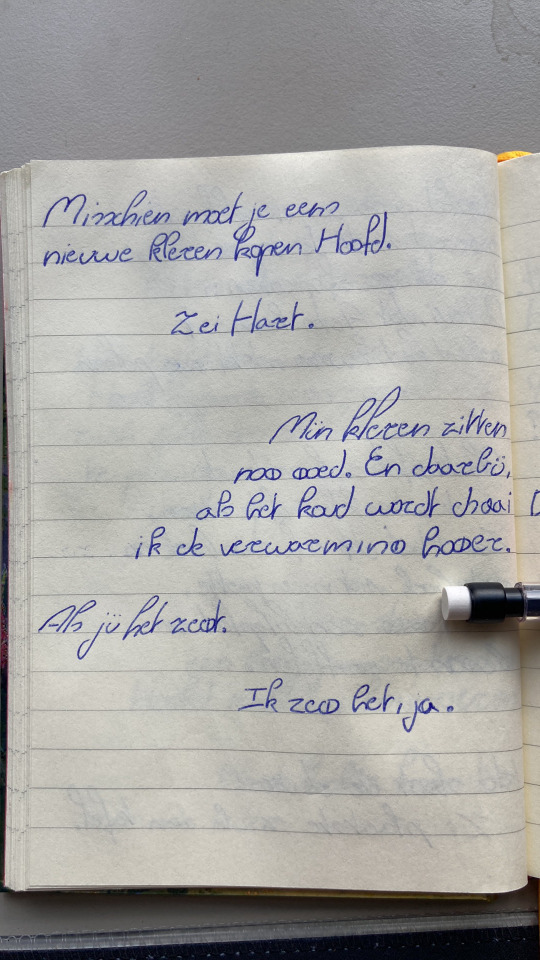 Misschien moet je eens
nieuwe kleren kopen Hoofd.
Zei Hart.
Mijn kleren zitten
nog goed. En daarbij,
als het koud wordt draai
ik de verwarming hoger.
Als jij het zegt.
Ik zeg het, ja.